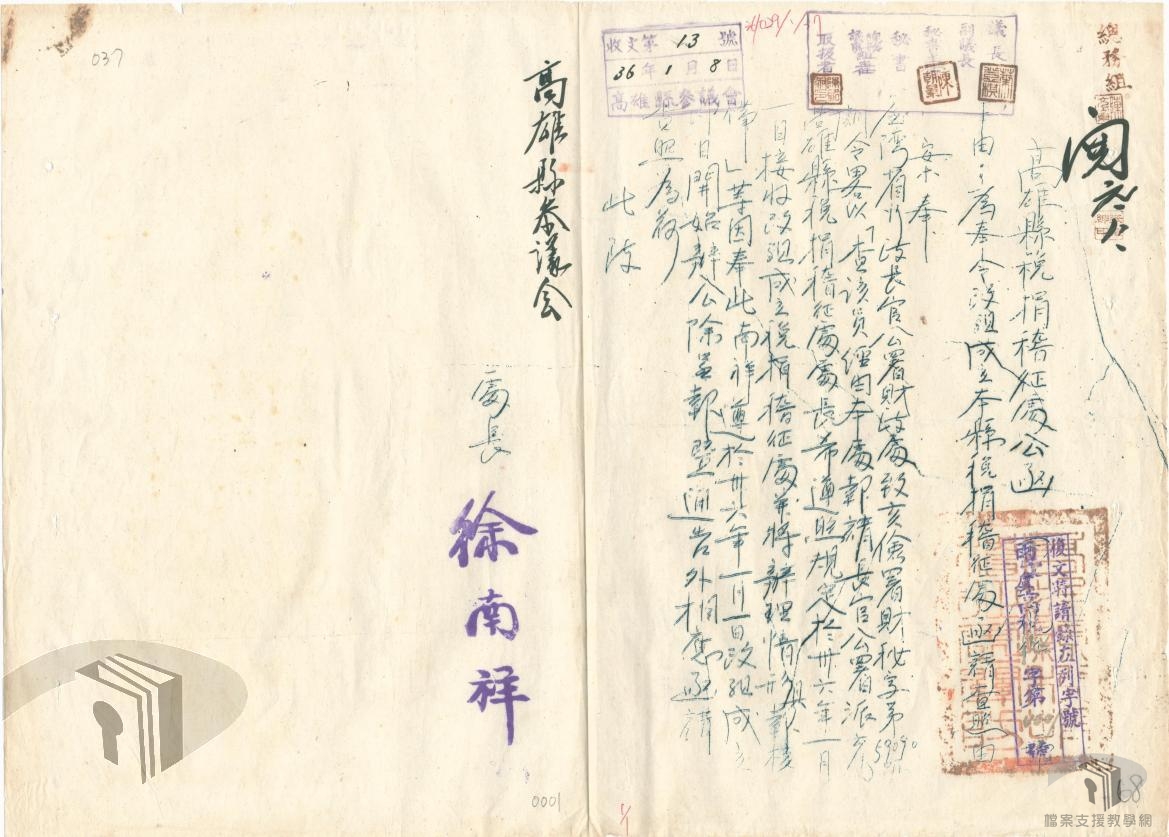 總務組
閱
高雄縣稅捐稽征處公函
事由:為奉令改組成立本縣稅捐稽征處函請查照由
復文時請錄左列字號
字第 號
案奉
台灣省行政長官公署財政處致亥儉署財秘字第59090
訓令畧以「查該員經由本處報請長官公署派充
高雄縣稅捐稽征處處長希遵照規定於卅六年一月
一日接收改組成立稅捐稽征處并將辦理情形報核
」等因奉此南祥遵於卅六年一月一日改組成立
即日開始辦公除呈報暨通告外相應函請
查照為荷
此致
高雄縣參議会
處長 徐南祥
議長
副議長
秘書
收文第13號
36年1月8日
高雄縣參議會
037
0001
68
檔案支援教學網